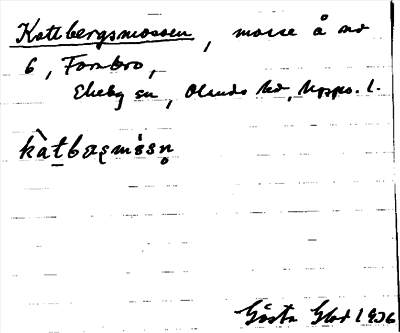 Kattbergsmossen, mosse å nr
6, Forsbro,
Ekeby sn, Olands hd, Upps. l.
kàtbærgsmòsn̥
Gösta Glad 1936